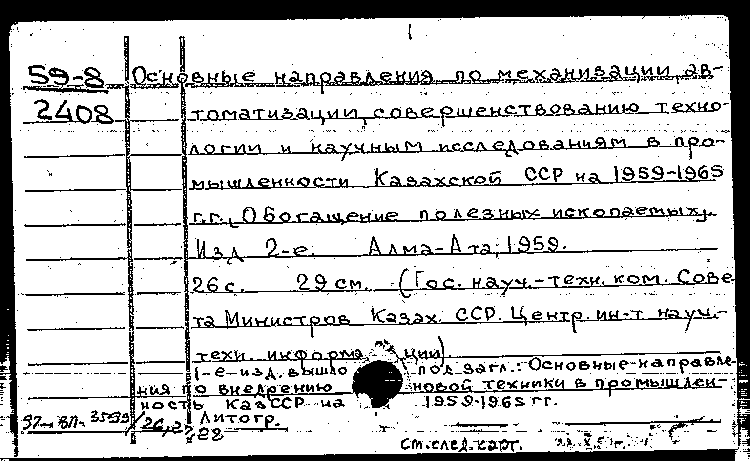 59-8 Основные направления по механизации, ав-
2408 томатизации, совершенствованию техно-
логии и научным исследованиям в про-
мышленности Казахской ССР на 1959-1965
г.г. (Обогащение полезных ископаемых).
Изд 2-е. Алма-Ата, 1959.
26 с. 29 см. (Гос. науч.-техн. ком. Сове-
та Министров Казах. ССР. Центр. ин-т науч.-
техн. информации).
1-е изд. вышло под загл.: Основные направле-
ния по внедрению новой техники в промышлен-
ность КазССР на 1959-1965 гг.
Литогр.
28
См. след. карт.